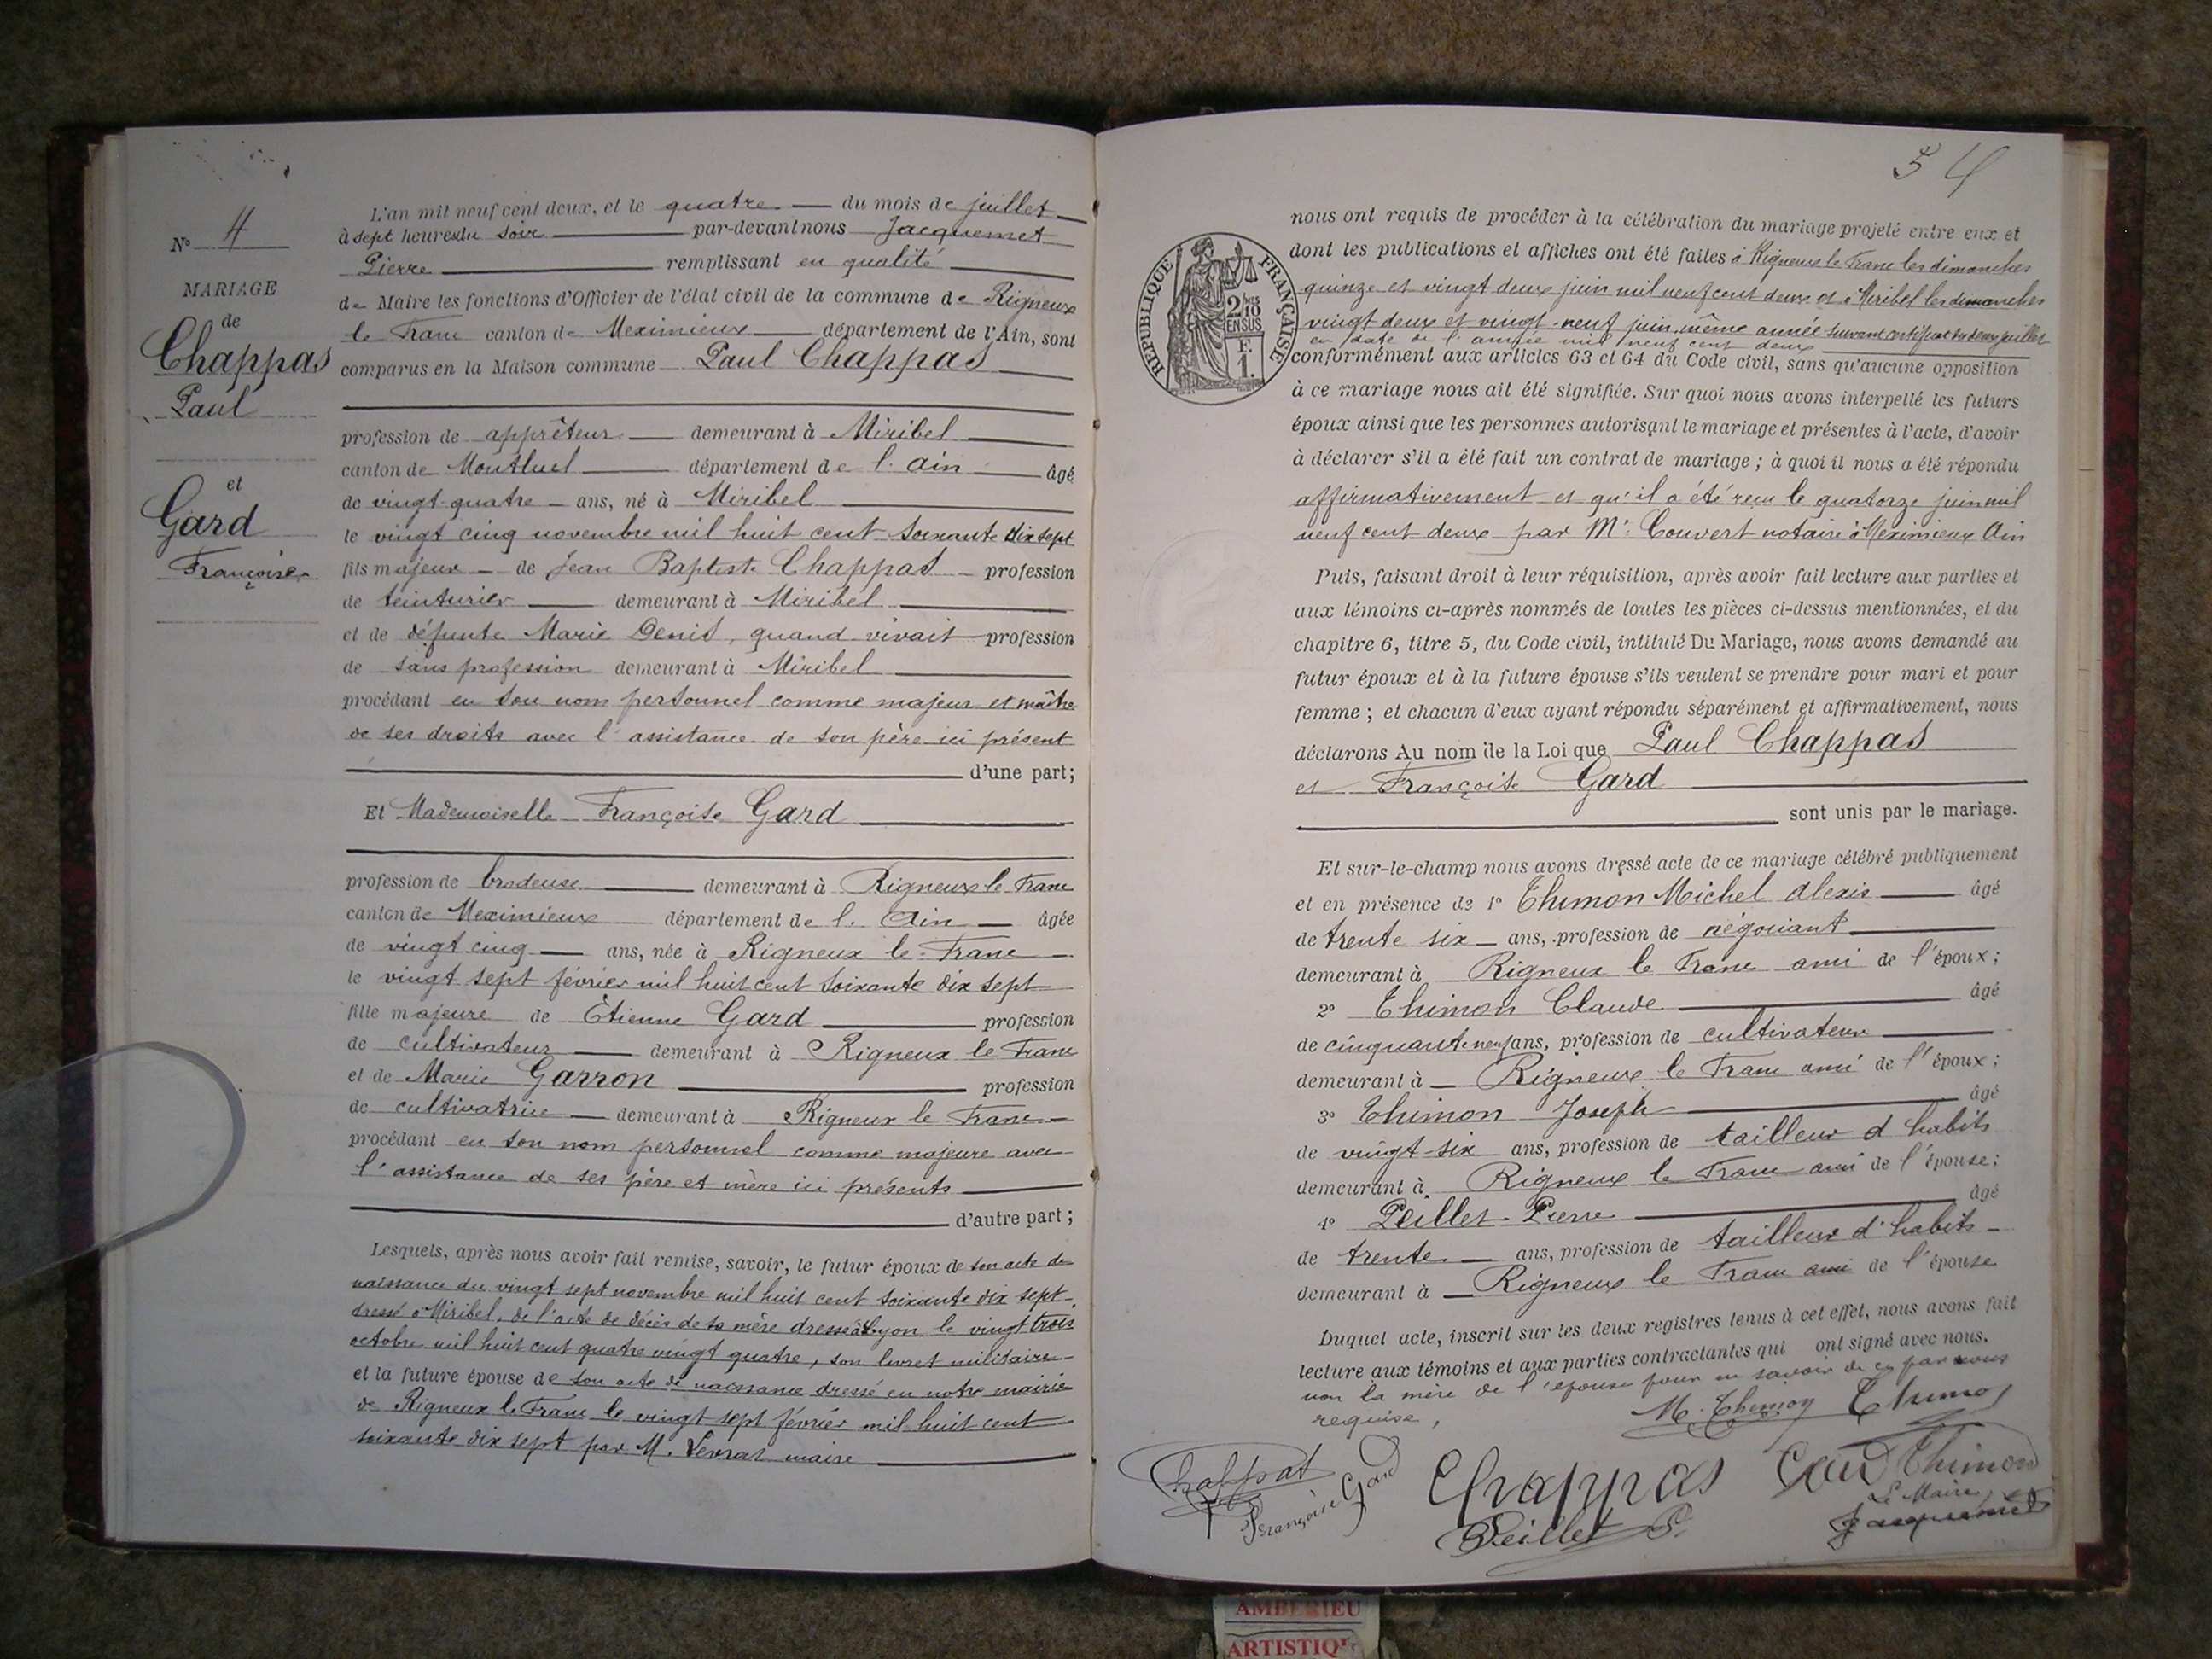 N° 4
MARIAGE
de
Chappas
Paul
et
Gard
Françoise
L'an mil neuf cent deux, et le quatre du mois de juillet
à sept heures du soir par-devant nous Jacquemet
Pierre remplissant en qualité
de Maire les fonctions d'Officier de l'état civil de la commune de Rigneux
le Franc canton de Meximieux département de l'Ain, sont
comparus en la Maison commune Paul Chappas
profession de apprêteur demeurant à Miribel
canton de Montluel département de l'Ain âgé
de vingt-quatre ans, né à Miribel
le vingt cinq novembre mil huit cent soixante dix sept
fils majeur de Jean Baptiste Chappas profession
de teinturier demeurant à Miribel
et de défunte Marie Denis, quand vivait profession
de sans profession demeurant à Miribel
procédant en son nom personnel comme majeur et maître
de ses droits avec l'assistance de son père ici présent
d'une part;
Et Mademoiselle Françoise Gard
profession de brodeuse demeurant à Rigneux le Franc
canton de Meximieux département de l'Ain âgée
de vingt cinq ans, née à Rigneux le Franc
le vingt sept février mil huit cent soixante dix sept
fille majeure de Étienne Gard profession
de cultivateur demeurant à Rigneux le Franc
et de Marie Garron profession
de cultivatrice demeurant à Rigneux le Franc
procédant en son nom personnel comme majeure avec
l'assistance de ses père et mère ici présents
d'autre part;
Lesquels, après nous avoir fait remise, savoir, le futur époux de son acte de
naissance du vingt sept novembre mil huit cent soixante dix sept
dressé à Miribel, de l'acte de décès de sa mère dressé à Lyon le vingt trois
octobre mil huit cent quatre vingt quatre, son livret militaire
et la future épouse de son acte de naissance dressé en notre mairie
de Rigneux le Franc le vingt sept février mil huit cent
soixante dix sept par M. Levrat maire
54
RÉPUBLIQUE FRANÇAISE
2/10 EN SUS
F. 1.
nous ont requis de procéder à la célébration du mariage projeté entre eux et
dont les publications et affiches ont été faites à Rigneux le Franc les dimanches
quinze et vingt deux juin mil neuf cent deux et à Miribel les dimanches
vingt deux et vingt-neuf juin même année suivant certificat du deux juillet
en date de l'année mil neuf cent deux
conformément aux articles 63 et 64 du Code civil, sans qu'aucune opposition
à ce mariage nous ait été signifiée. Sur quoi nous avons interpellé les futurs
époux ainsi que les personnes autorisant le mariage et présentes à l'acte, d'avoir
à déclarer s'il a été fait un contrat de mariage; à quoi il nous a été répondu
affirmativement et qu'il a été reçu le quatorze juin mil
neuf cent deux par Me Couvert notaire à Meximieux Ain
Puis, faisant droit à leur réquisition, après avoir fait lecture aux parties et
aux témoins ci-après nommés de toutes les pièces ci-dessus mentionnées, et du
chapitre 6, titre 5, du Code civil, intitulé Du Mariage, nous avons demandé au
futur époux et à la future épouse s'ils veulent se prendre pour mari et pour
femme; et chacun d'eux ayant répondu séparément et affirmativement, nous
déclarons Au nom de la Loi que Paul Chappas
et Françoise Gard
sont unis par le mariage.
Et sur-le-champ nous avons dressé acte de ce mariage célébré publiquement
et en présence de 1° Thimon Michel Alexis âgé
de trente six ans, profession de négociant
demeurant à Rigneux le Franc ami de l'époux;
2° Thimon Claude âgé
de cinquante neuf ans, profession de cultivateur
demeurant à Rigneux le Franc ami de l'époux;
3° Thimon Joseph âgé
de vingt-six ans, profession de tailleur d'habits
demeurant à Rigneux le Franc ami de l'épouse;
4° Peillet Pierre âgé
de trente ans, profession de tailleur d'habits
demeurant à Rigneux le Franc ami de l'épouse
Duquel acte, inscrit sur les deux registres tenus à cet effet, nous avons fait
lecture aux témoins et aux parties contractantes qui ont signé avec nous.
non la mère de l'épouse pour ne savoir de ce par nous
requise,
M. Thimon Thimon
Chappas Françoise Gard Chappas Gard Thimon
Peillet P. Le Maire
Jacquemet
AMBERIEU
ARTISTIQU